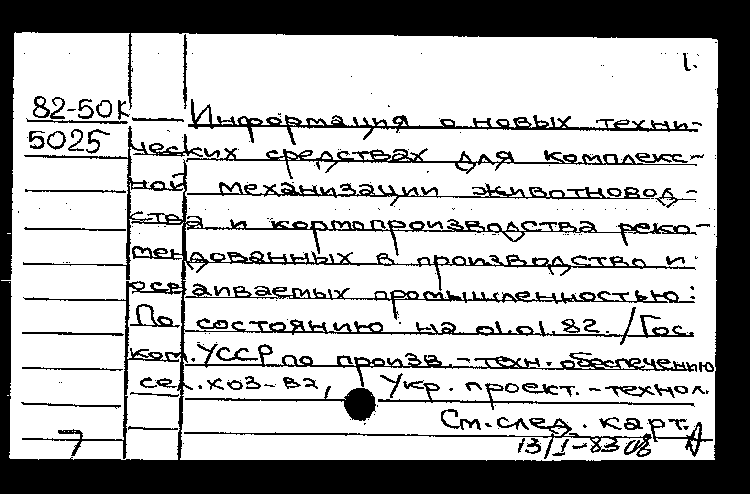 1.
82-50К Информация о новых техни-
5025 ческих средствах для комплекс-
ной механизации животновод-
ства и кормопроизводства реко-
мендованных в производство и
осваиваемых промышленностью:
По состоянию на 01.01.82. / Гос.
ком. УССР по произв.-техн. обеспечению
сел. хоз-ва, Укр. проект.-технол.
См. след. карт.
7 13/I-83